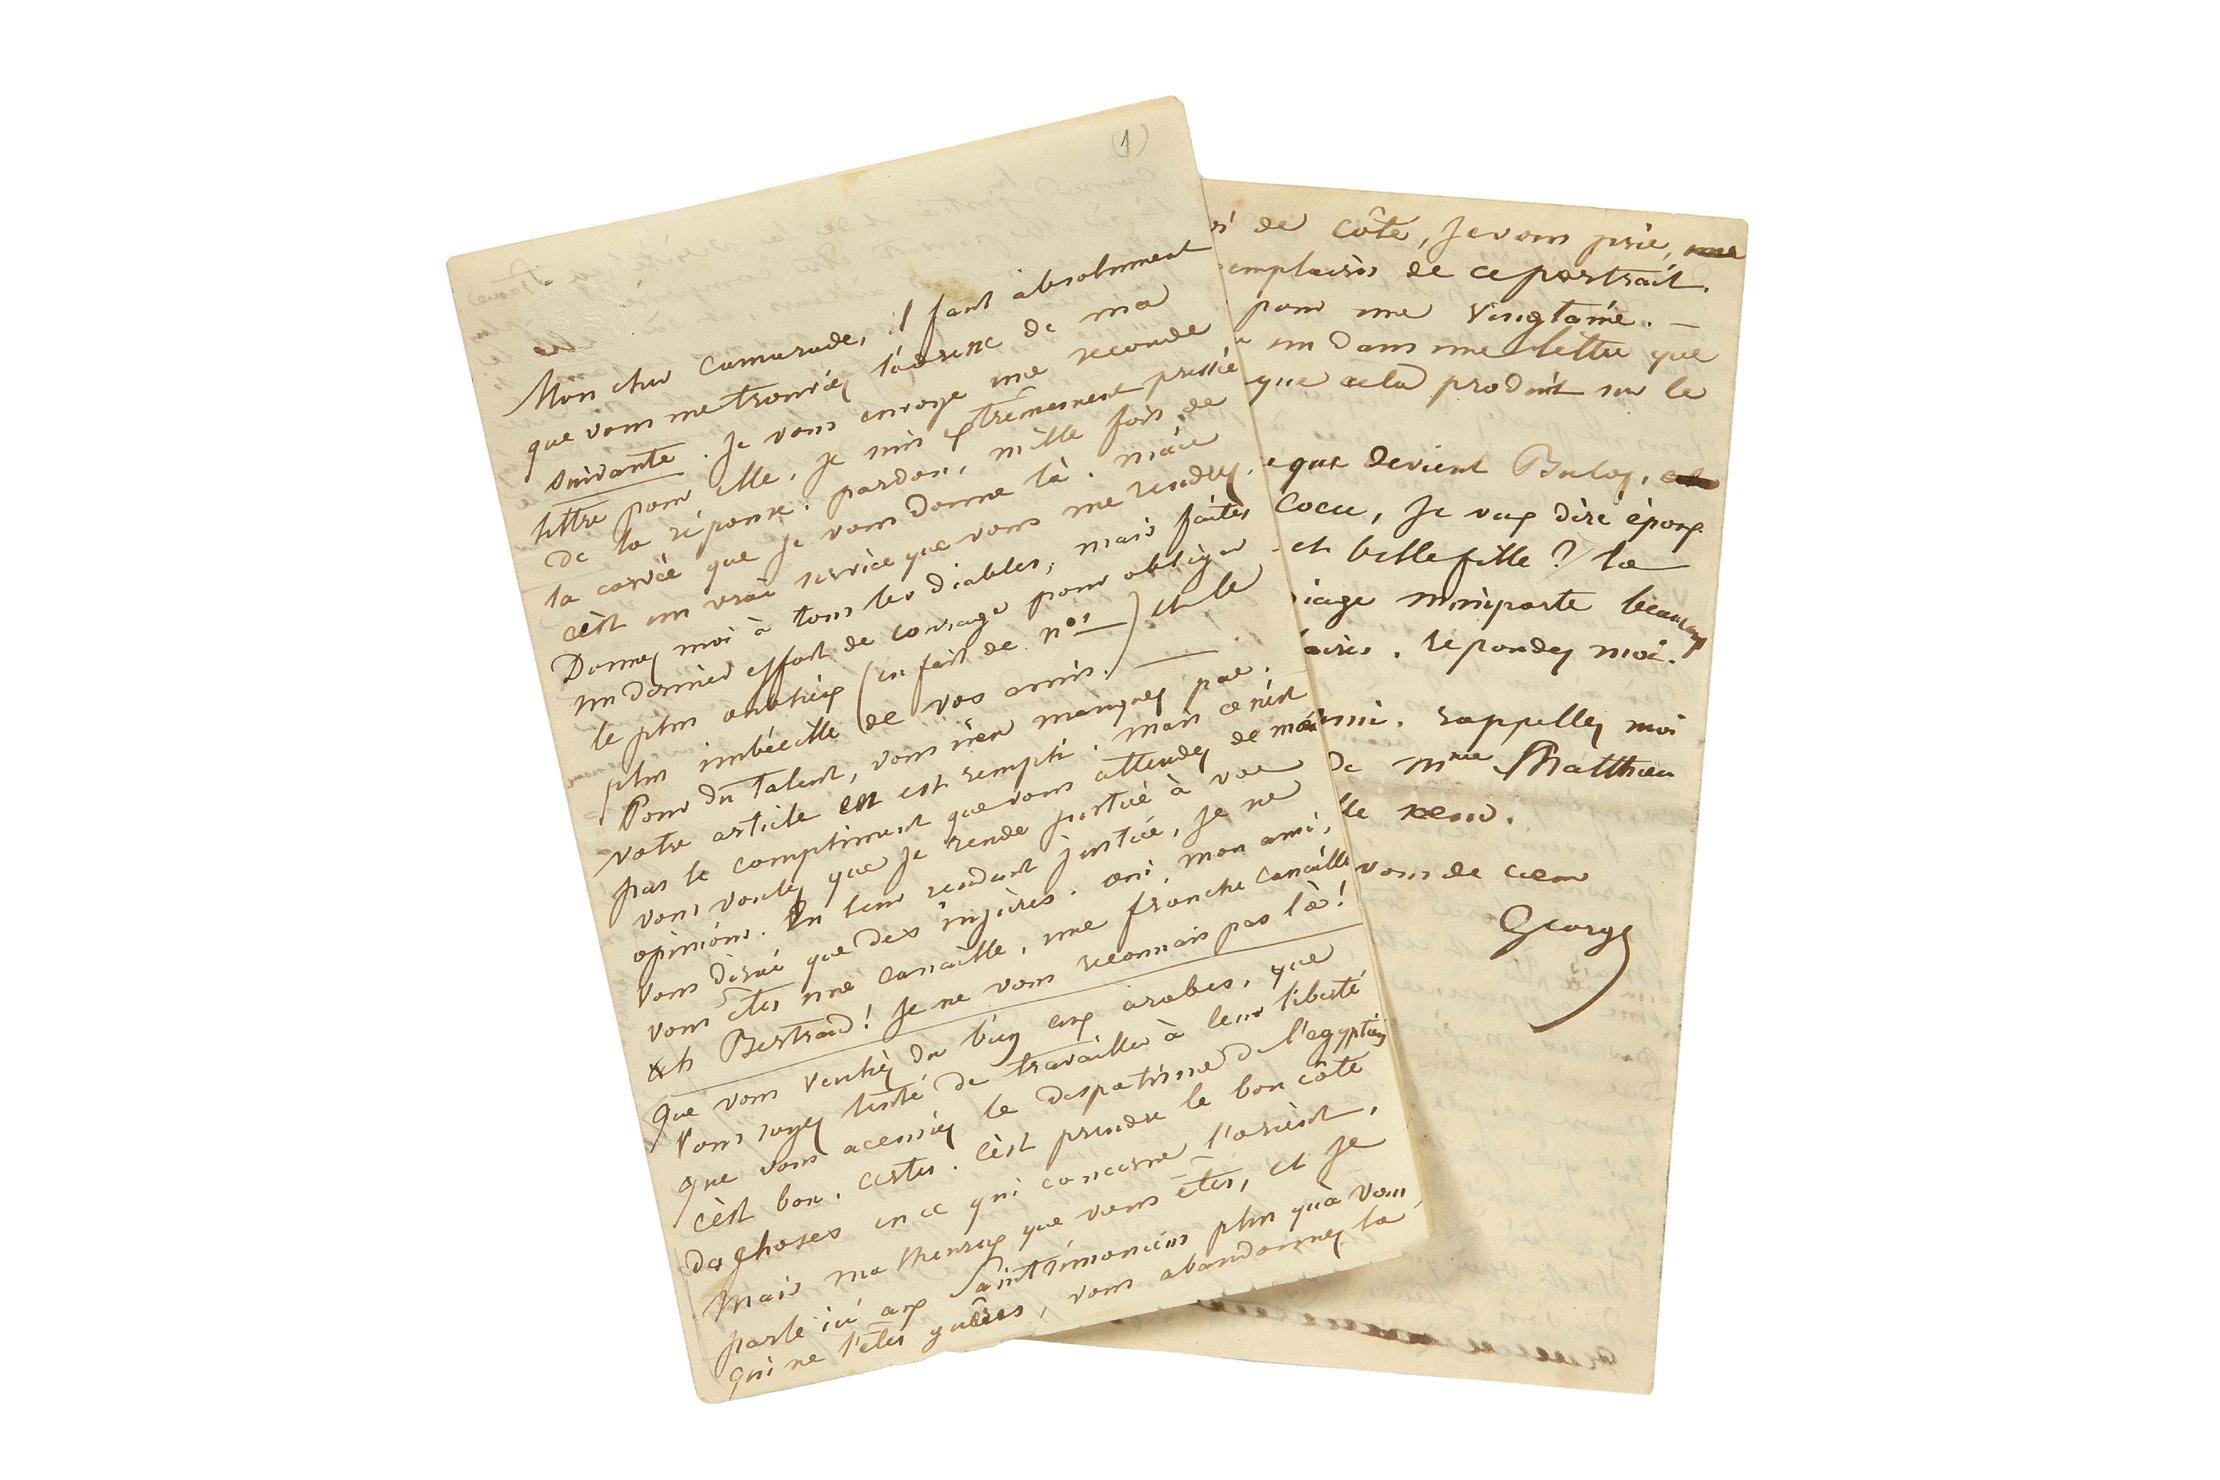 (1)
Mon cher camarade, il faut absolument
que vous me trouviez l'adresse de ma
suivante. Je vous envoye une seconde
lettre pour elle, je suis extrêmement pressée
de la réponse. pardon, mille fois de
la corvée que je vous donne là. mais
c'est un vrai service que vous me rendrez.
Donnez moi à tous les diables, mais faites
un dernier effort de courage pour obliger
le plus ennuyeux (en fait de nos) et le
plus imbécille de vos amis.
Pour du talent, vous n'en manquez pas.
votre article en est rempli. mais ce n'est
pas le compliment que vous attendez de moi
vous voulez que je rende justice à vos
opinions. En leur rendant justice, je ne
vous dirai que des injures. oui, mon ami,
vous êtes une canaille, une franche canaille
ah Bertrand! je ne vous reconnais pas là!
Que vous vouliez du bien aux arabes, que
vous soyez tenté de travailler à leur liberté
que vous accusiez le despotisme de l'egyptien
c'est bon, certes. c'est prendre le bon côté
des choses en ce qui concerne l'orient,
mais malheureux que vous êtes, et je
parle ici aux Saint Simoniens plus qu'à vous
qui ne l'êtes guères, vous abandonnez la
de côté, je vous prie,
emplaires de ce portrait.
pour une vingtaine. —
un dans une lettre que
que cela produit sur le
que devient Buloz,
Cocu, je veux dire époux
et belle fille? la
iage m'importe beaucoup
aires. répondez moi.
rappellez moi
de Mme Matthieu
le
vous de cœur
George